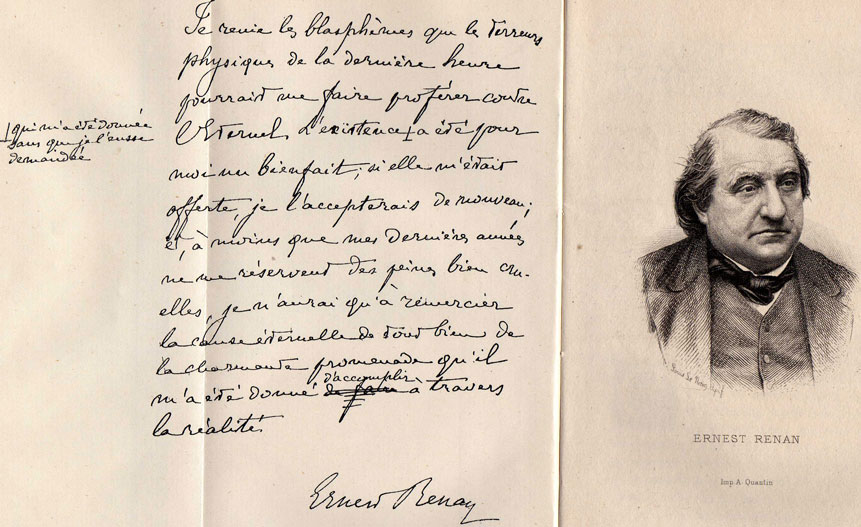 Je renie les blasphèmes que les terreurs
physiques de la dernière heure
pourraient me faire proférer contre
l'Eternel. L'existence a été pour
qui m'a été donnée
sans que je l'eusse
demandée
moi un bienfait ; si elle m'était
offerte, je l'accepterais de nouveau ;
et, à moins que mes dernières années
ne me réservent des peines bien cru-
elles, je n'aurai qu'à remercier
la cause éternelle de tout bien de
la charmante promenade qu'il
m'a été donné de faire d'accomplir à travers
la réalité.
Ernest Renan
ERNEST RENAN
Imp. A. Quantin